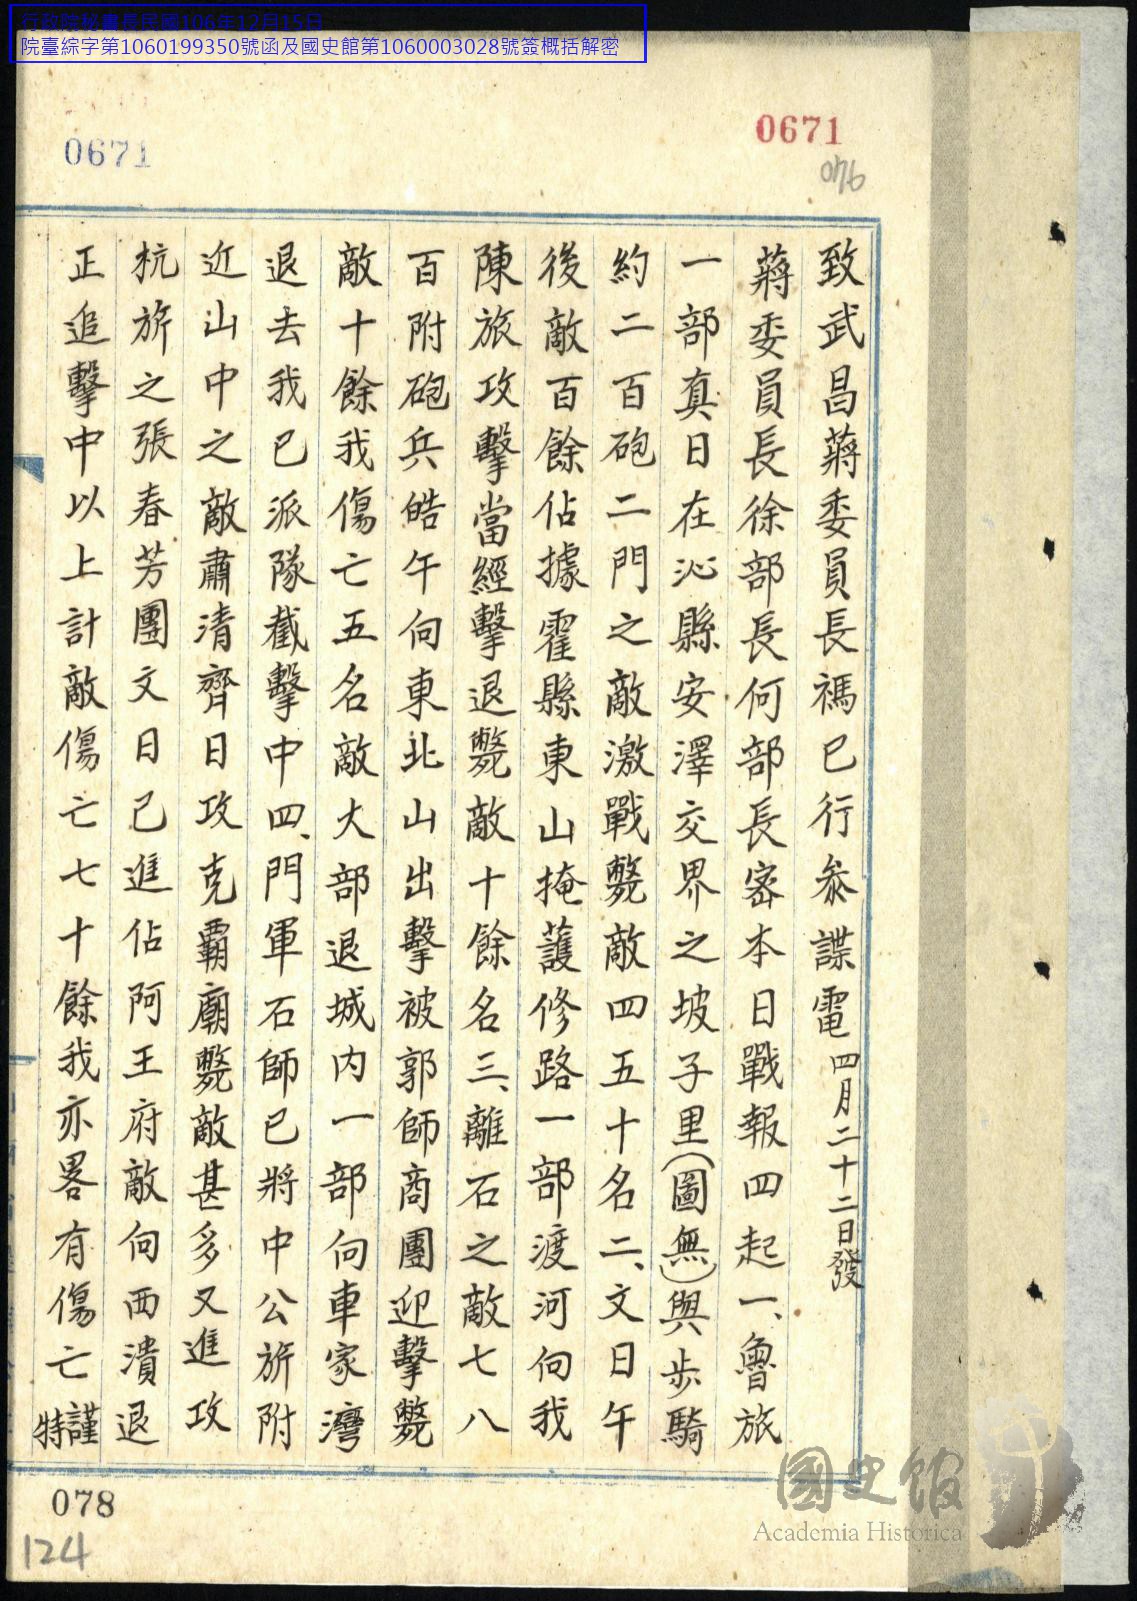 行政院秘書長民國106年12月15日
院臺綜字第1060199350號函及國史館第1060003028號簽概括解密
0671
0671
076
致武昌蔣委員長禡巳行參謀電四月二十二日發
蔣委員長徐部長何部長密本日戰報四起一、魯旅
一部真日在沁縣安澤交界之坡子里(圖無)與步騎
約二百砲二門之敵激戰斃敵四五十名二、文日午
後敵百餘佔據霍縣東山掩護修路一部渡河向我
陳旅攻擊當經擊退斃敵十餘名三、離石之敵七八
百附砲兵皓午向東北山出擊被郭師商團迎擊斃
敵十餘我傷亡五名敵大部退城內一部向車家灣
退去我已派隊截擊中四、門軍石師已將中公旂附
近山中之敵肅清齊日攻克霸廟斃敵甚多又進攻
杭旂之張春芳團文日已進佔阿王府敵向西潰退
正追擊中以上計敵傷亡七十餘我亦畧有傷亡謹
特
078
124
國史館
Academia Historica